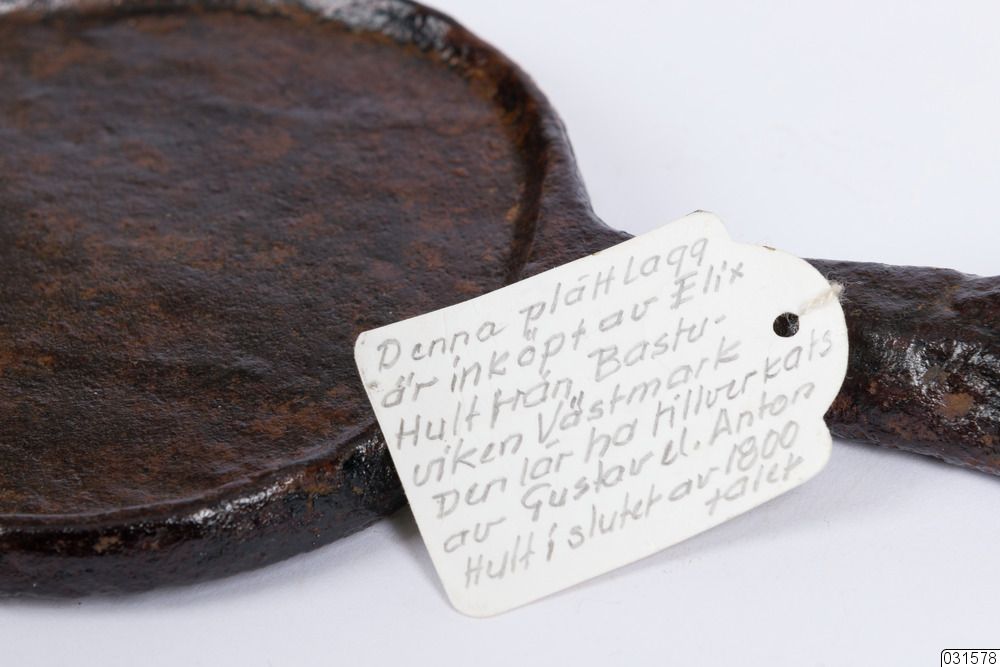 Denna plättlagg
är inköpt av Elix
Hult från Bastu-
viken Västmark
Den lär ha tillverkats
av Gustav U. Anton
Hult i slutet av 1800
talet
031578